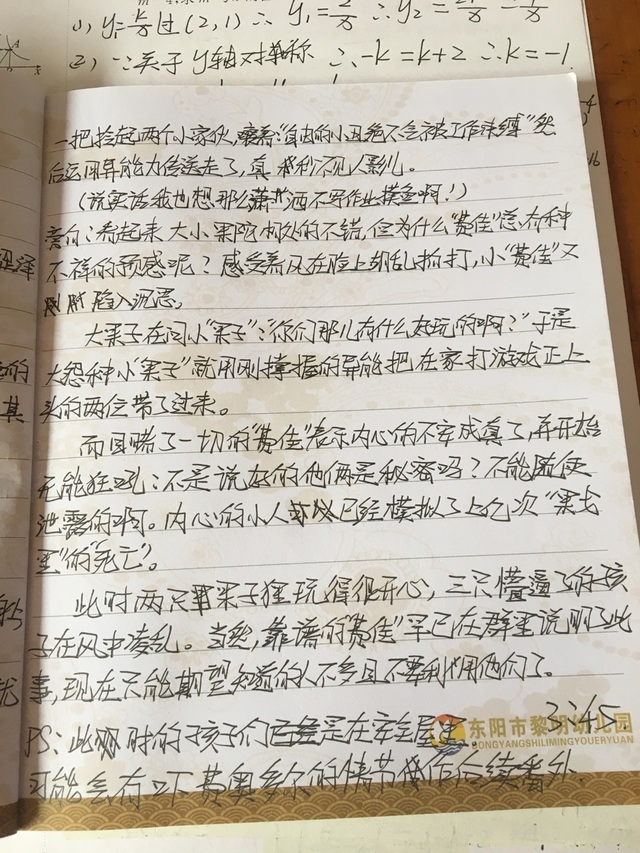 (1) y=k/x过(2,1) ∴ y₁=2/x ∴ y₂=
(2) ∵关于y轴对称 ∴-k=k+2 ∴k=-1.
一把捡起两个小家伙,嚷着:“自由的小丑绝不会被工作束缚”然
后运用异能力传送走了,真 秒不见人影儿。
(说实话我也想那么潇洒不写作业摸鱼啊!)
旁白:看起来 大小果陀相处的不错,但为什么“费佳”总有种
不祥的预感呢?感受着风在脸上胡乱拍打,小“费佳”又
陷入沉思。
大果子在问小“果子”:“你们那儿有什么好玩的啊?”于是
大怨种小“果子”就用刚掌握的异能把在家打游戏正上
头的两位带了过来。
而目睹了一切的“费佳”表示内心的不安成真了,并开始
无能狂吼:不是说在的他俩是秘密吗?不能随便
泄露的啊。内心的小人 已经模拟了上亿次“果戈
里”的“死亡”。
此时两只 果子狂玩得很开心,三只懵逼了的孩
子在风中凌乱。当然,靠谱的“费佳”早已在群里说明了此
事,现在只能期望知道的人不多且不要利用他们了。
3:45.
PS:此 时的孩子们 是在安全屋里
东阳市黎明幼儿园
DONGYANGSHILIMINGYOUERYUAN
可能会有吓费奥多尔的情节 作后续番外.